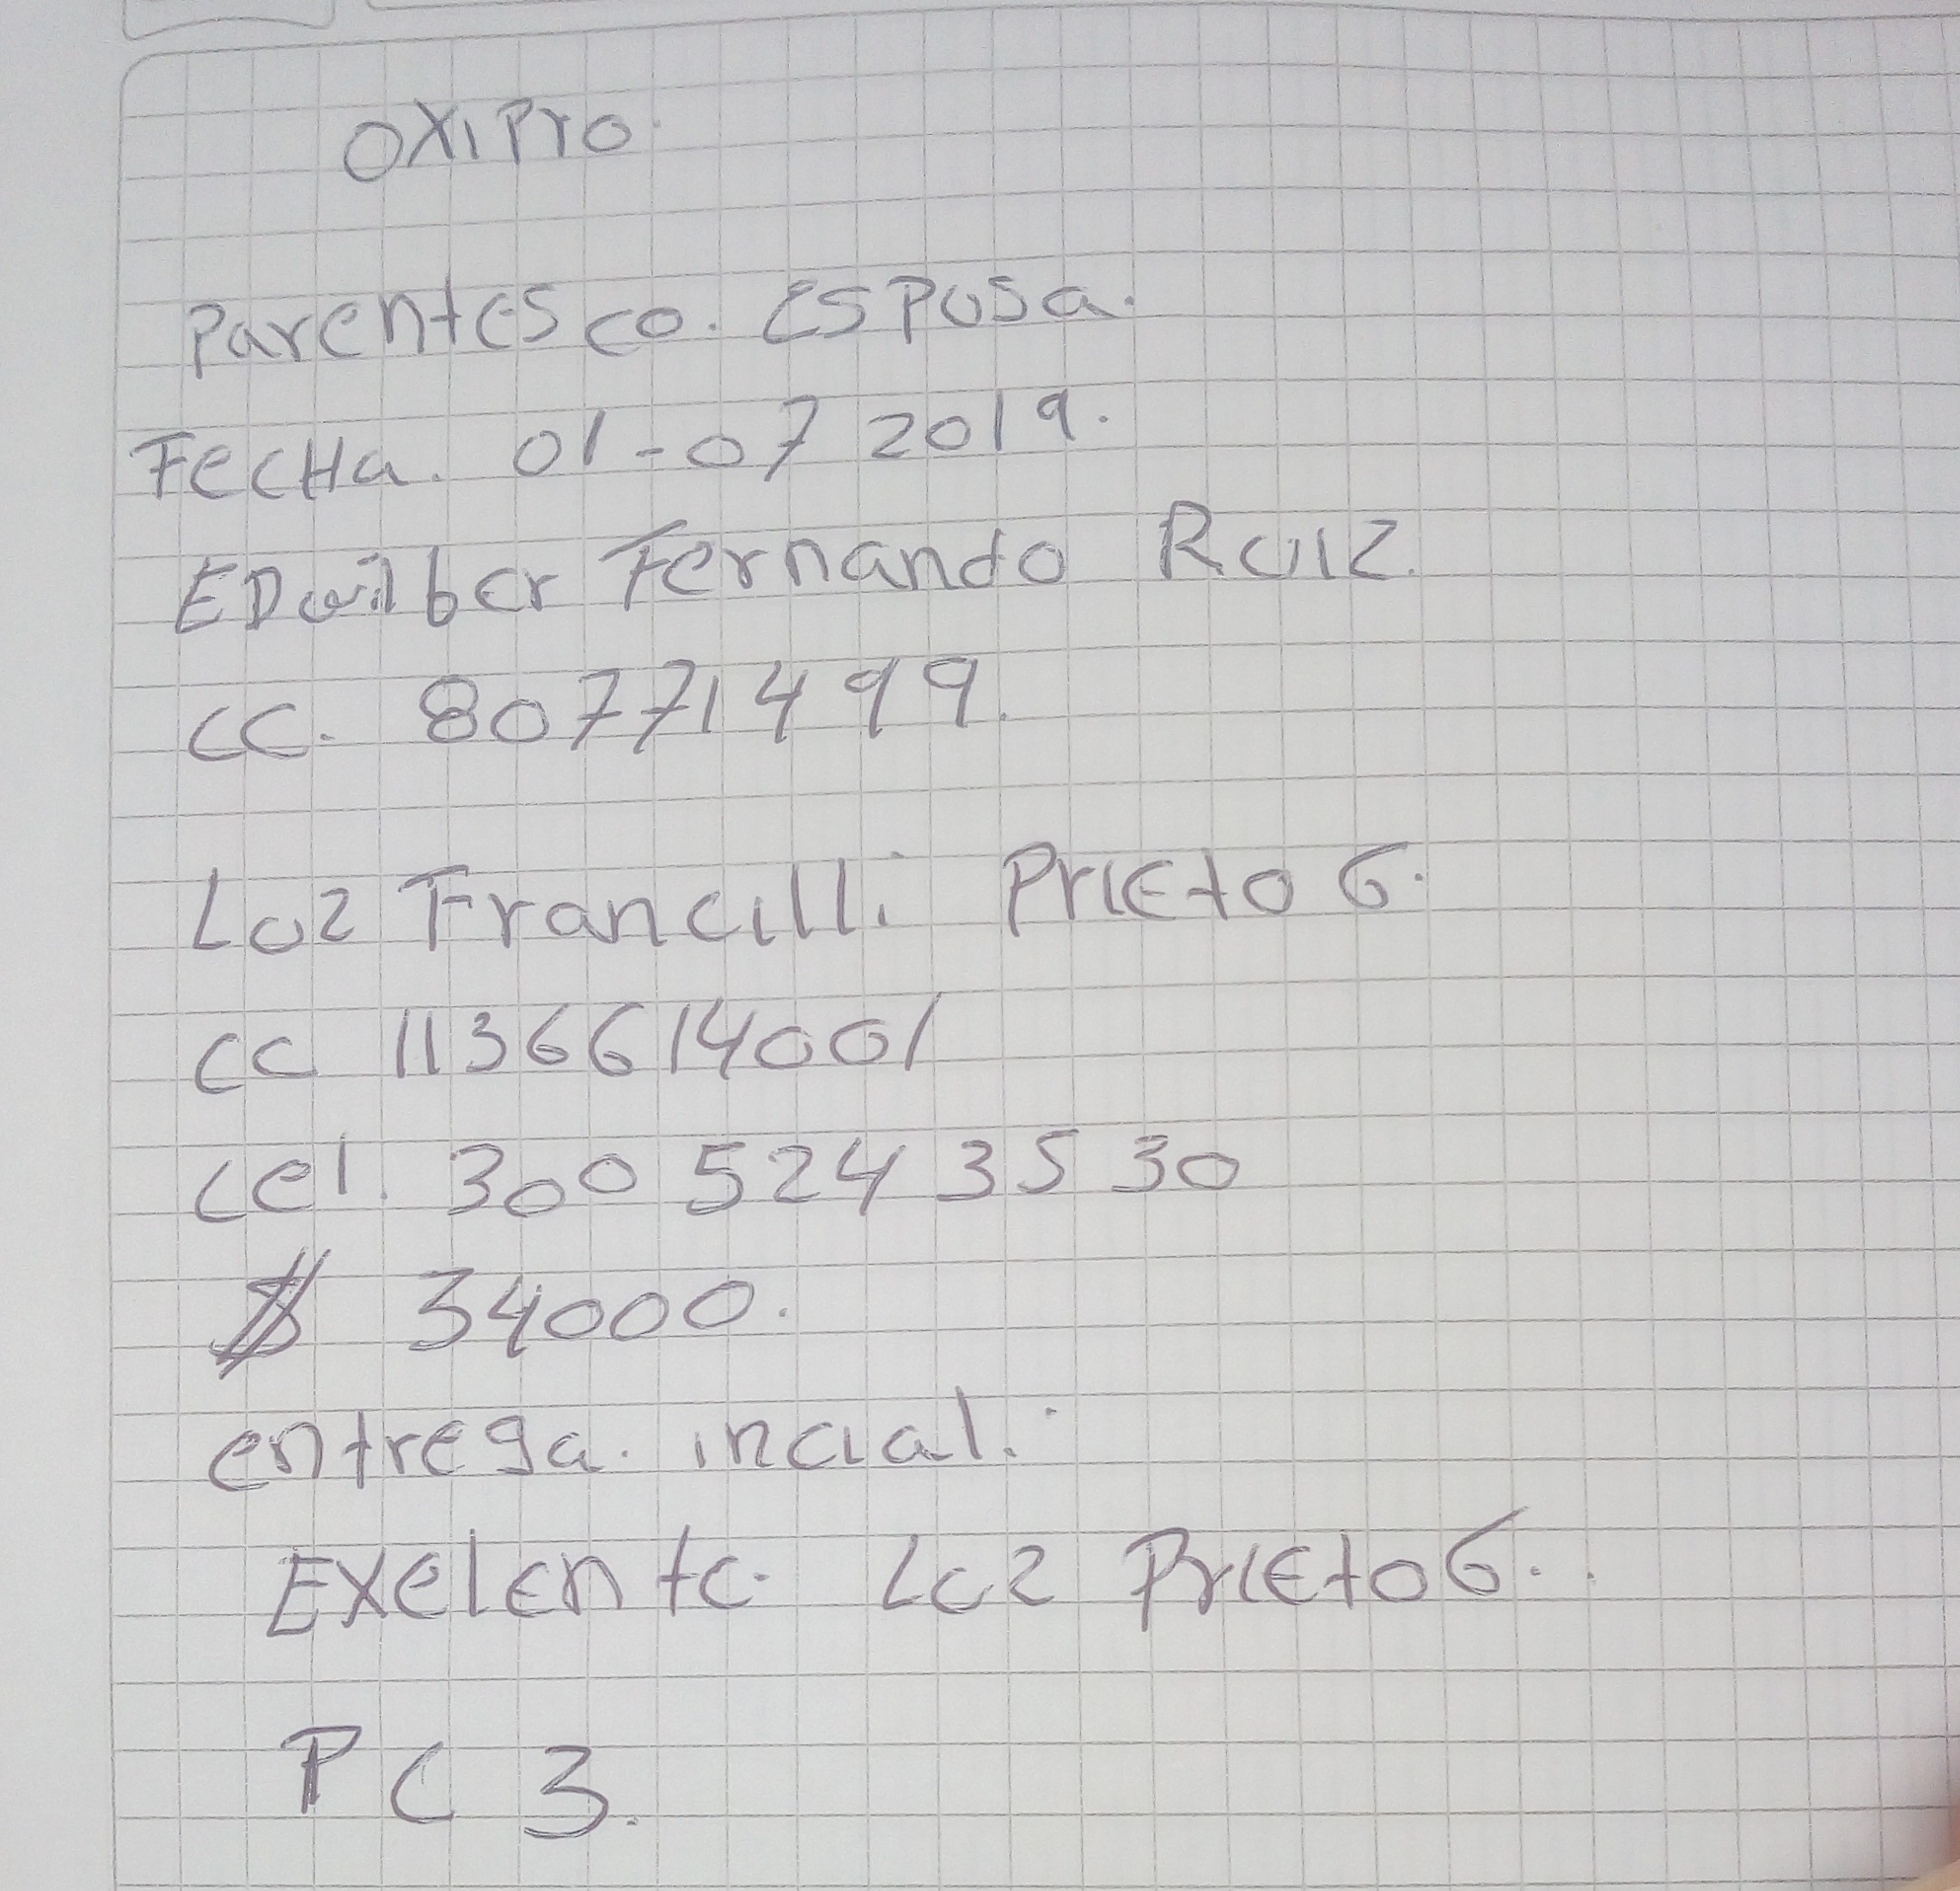 OXIPro.
Parentesco. Esposa.
FecHa. 01-07 2019.
EDwilber Fernando Ruiz.
CC. 80771499.
Luz Francilli Prieto G.
CC 1136614001
Cel. 300 524 35 30
$ 34000.
entrega. incial.
Exelente. Luz Prieto G..
PC 3.